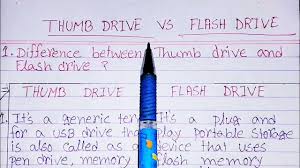 THUMB DRIVE VS FLASH DRIVE
1. Difference between Thumb drive and
Flash drive ?
THUMB DRIVE FLASH DRIVE
1. It's a generic term It's a plug and
for a USB drive that play portable storage
is also called as device that uses
pen drive, memory flash memory